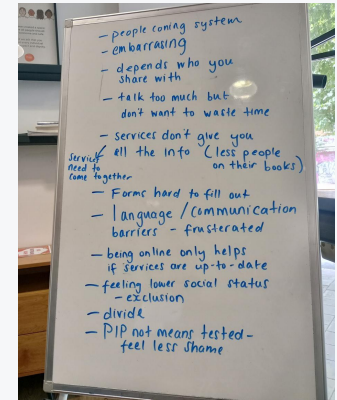 - people coning system
- embarrasing
- depends who you
share with
- talk too much but
don't want to waste time
- services don't give you
all the info (less people
on their books)
services
need to
come together
- Forms hard to fill out
- language / communication
barriers - frusterated
- being online only helps
if services are up-to-date
- feeling lower social status
- exclusion
- divide
- PIP not means tested -
feel less shame